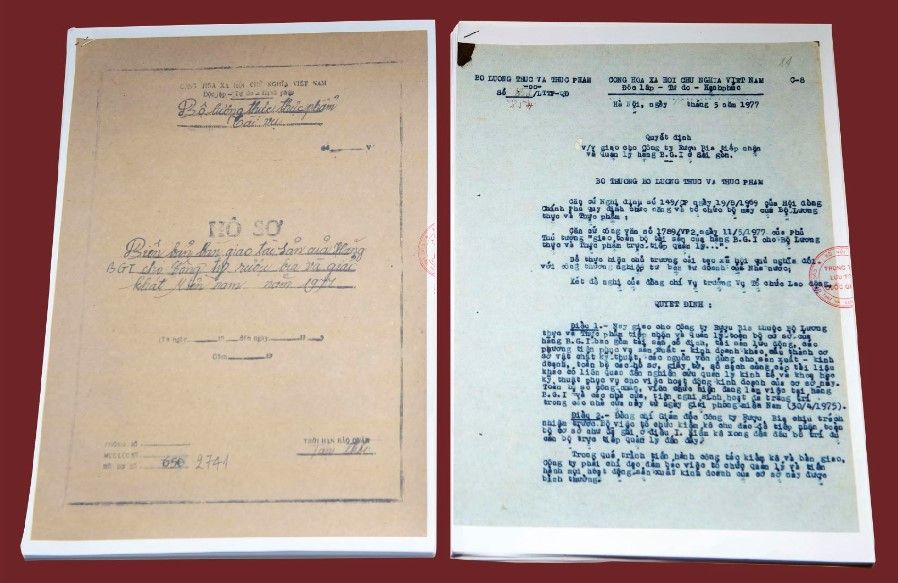 CỘNG HÒA XÃ HỘI CHỦ NGHĨA VIỆT NAM
Độc lập - Tự do - Hạnh phúc
Bộ lương thực thực phẩm
Số
HỒ SƠ
Biên bản bàn giao tài sản của Hãng
BGI cho Công ty rượu bia và giải
khát Miền nam năm 1977
(Từ ngày 19 đến ngày 19
Gồm
PHÔNG SỐ
MỤC LỤC SỐ
HỒ SƠ SỐ 650 2741
THỜI HẠN BẢO QUẢN
BỘ LƯƠNG THỰC VÀ THỰC PHẨM
Số /LTTP-QĐ
CỘNG HÒA XÃ HỘI CHỦ NGHĨA VIỆT NAM
Độc lập - Tự do - Hạnh phúc
C-8
Hà Nội, ngày tháng 5 năm 1977
Quyết định
v/v giao cho Công ty Rượu Bia tiếp nhận
và Quản lý hãng B.G.I ở Sài gòn.
BỘ TRƯỞNG BỘ LƯƠNG THỰC VÀ THỰC PHẨM
Căn cứ Nghị định số 149/CP ngày 19/8/1969 của Hội đồng
Chính Phủ quy định chức năng và tổ chức bộ máy của Bộ Lương
thực và Thực phẩm ;
Căn cứ công văn số 1789/VP2 ngày 11/5/1977 của Phủ
Thủ tướng "giao toàn bộ tài sản của hãng B.G.I cho Bộ Lương
thực và Thực phẩm trực tiếp quản lý...".
Để thực hiện chủ trương cải tạo xã hội chủ nghĩa đối
với công thương nghiệp tư bản tư doanh của Nhà nước;
Xét đề nghị của đồng chí Vụ trưởng Vụ Tổ chức Lao động,
QUYẾT ĐỊNH :
Điều 1.- Nay giao cho Công ty Rượu Bia thuộc Bộ Lương
thực và Thực phẩm tiếp nhận và quản lý toàn bộ cơ sở của
hãng B.G.I bao gồm tài sản cố định, tài sản lưu động, các
phương tiện phục vụ sản xuất - kinh doanh khác, các thành cơ
sở vật chất kỹ thuật, các nguồn vốn dùng cho sản xuất - kinh
doanh, toàn bộ các hồ sơ, giấy tờ, sổ sách cùng các tài liệu
khác có liên quan đến nghiên cứu quản lý kinh tế và khoa học
kỹ thuật phục vụ cho việc hoạt động kinh doanh của cơ sở này.
Toàn bộ số công nhân, viên chức hiện đang làm việc tại hãng
B.G.I và các nhà cửa, tiện nghi sinh hoạt đã trang trí
trong các nhà cửa này từ ngày giải phóng miền Nam (30/4/1975).
Điều 2.- Đồng chí Giám đốc Công ty Rượu, Bia chịu trách
nhiệm trước Bộ việc tổ chức kiểm kê cho đến tiếp nhận toàn
bộ cơ sở như đã ghi ở điều I. Kiểm kê xong đến đâu bố trí
cán bộ trực tiếp quản lý đến đấy.
Trong quá trình tiến hành công tác kiểm kê và bàn giao,
Công ty phải chỉ đạo đảm bảo việc tổ chức quản lý và tiến
hành mọi hoạt động sản xuất kinh doanh của cơ sở này được
bình thường.